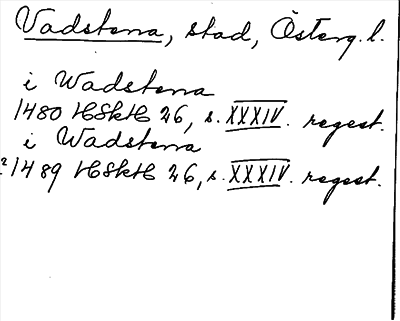 Vadstena, stad, Österg. l.
i Wadstena
1480 HSkH 26, s. XXXIV. regest.
i Wadstena
?1489 HSkH 26, s. XXXIV. regest.